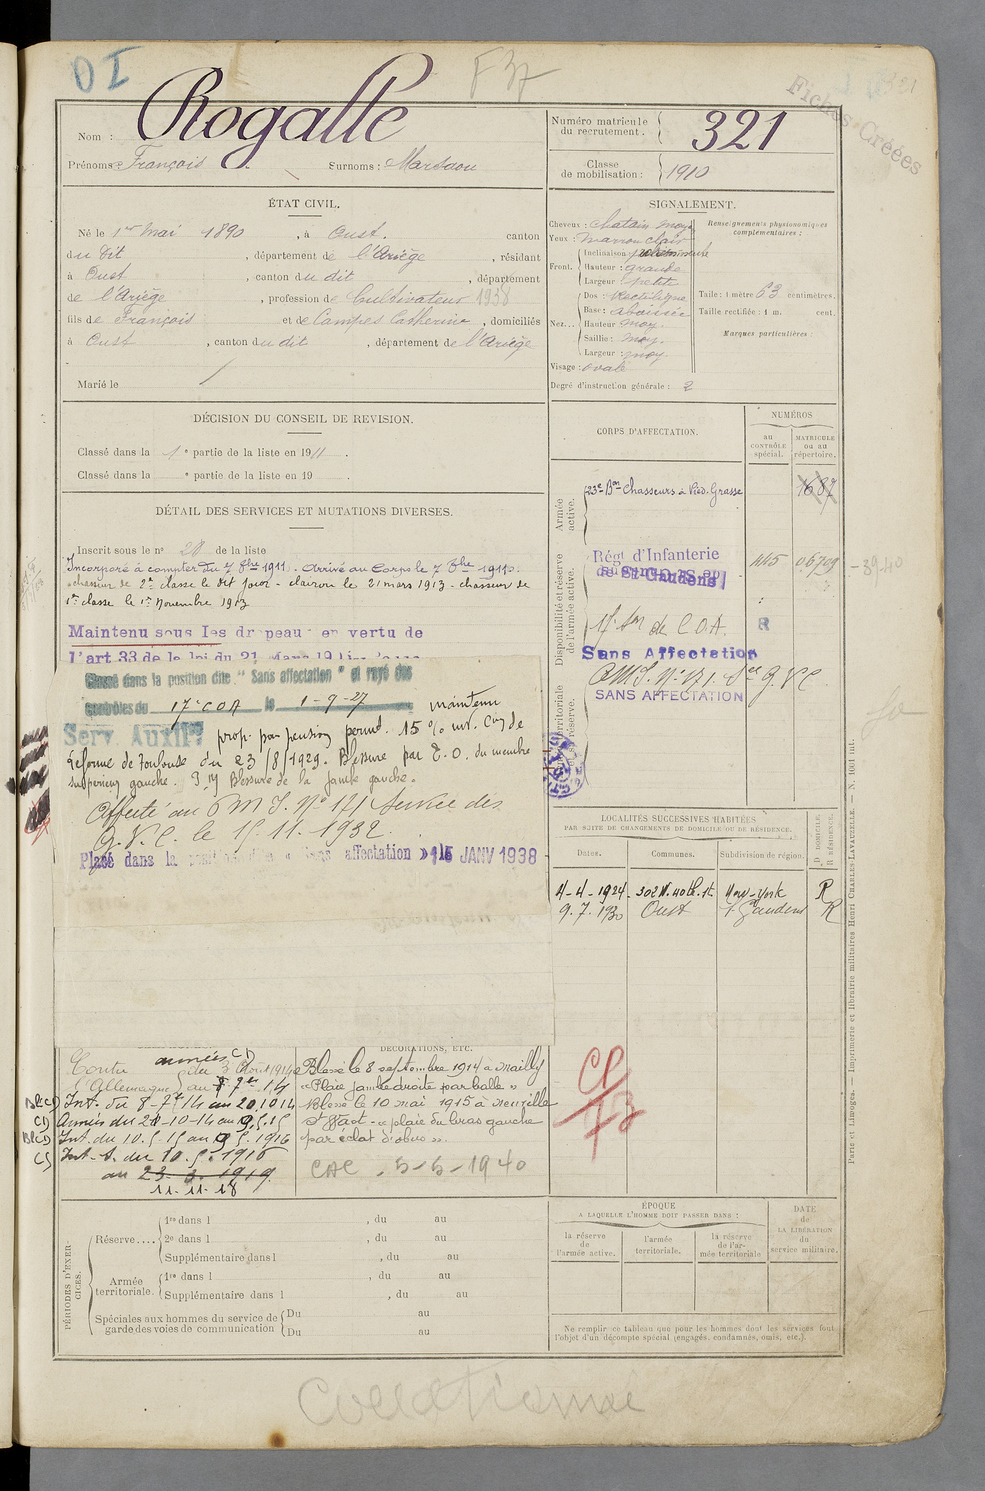 OI
F 37
321
Fiches Créées
Nom : Rogalle
Prénoms : François Surnoms : Marsaou
Numéro matricule du recrutement : 321
Classe de mobilisation : 1910
ÉTAT CIVIL.
Né le 1er Mai 1890, à Oust. canton
du dit, département de l'Ariège, résidant
à Oust, canton du dit, département
de l'Ariège, profession de Cultivateur 1938
fils de François et de Campes Catherine, domiciliés
à Oust, canton du dit, département de l'Ariège
Marié le
SIGNALEMENT.
Cheveux : chatain moyen
Yeux : Marron clair
Front. Inclinaison :
Hauteur : grande
Largeur : petit
Nez... Dos : Rectiligne
Base : abaissée
Hauteur moy.
Saillie : moy.
Largeur : moy
Visage : ovale
Renseignements physionomiques complémentaires :
Taille : 1 mètre 63 centimètres.
Taille rectifiée : 1 m. cent.
Marques particulières :
Degré d'instruction générale : 2
DÉCISION DU CONSEIL DE REVISION.
Classé dans la 1e partie de la liste en 1911.
Classé dans la e partie de la liste en 19 .
DÉTAIL DES SERVICES ET MUTATIONS DIVERSES.
Inscrit sous le n° 28 de la liste
Incorporé à compter du 7 8bre 1911. Arrivé au Corps le 7 8bre 1911.
chasseur de 2e classe le dit jour - clairon le 21 mars 1913 - chasseur de
1re classe le 1er Novembre 1913
Maintenu sous les drapeaux en vertu de
l'art 33 de la loi du 21 Mars 19
Classé dans la position dite "Sans affectation" et rayé des
contrôles du 17e COA le 1-9-27 maintenu
Serv. Auxil. prop. pour pension permt. 15 % inv. Con de
Réforme de Toulouse du 23/8/1929. Blessure par E.O. du membre
supérieur gauche. Blessure de la jambe gauche.
Affecté au P.M.S. N° 171 Service des
G.V.C. le 15.11.1932.
Placé dans la position dite « Sans affectation » 15 JANV 1938
CORPS D'AFFECTATION.
NUMÉROS
au CONTRÔLE spécial.
MATRICULE ou au répertoire.
Armée active.
23e Bon Chasseurs à Pied. Grasse 1687
Disponibilité et réserve de l'armée active.
Régt d'Infanterie
de St Gaudens
06709
39-40
17e Son de COA. R
Sans Affectation
Territoriale réserve.
SANS AFFECTATION
LOCALITÉS SUCCESSIVES HABITÉES
PAR SUITE DE CHANGEMENTS DE DOMICILE OU DE RÉSIDENCE.
Dates. Communes. Subdivision de région. D. DOMICILE. R. RÉSIDENCE.
4-4-1924 302 W. 40th. St New-York R
9.7.1930 Oust St Gaudens R
Contre l'Allemagne
armées CD
du 3 Août 1914
au 7 7bre 14
BlCD Int. du 8-7bre 14 au 20.10 14
CD Armées du 21-10-14 au 9.5.15
BlCD Int. du 10.5.15 au 9.5.1916
CS Int. S. du 10.5.1916
au 23.3.1919
11-11-18
DÉCORATIONS, ETC.
Blessé le 8 septembre 1914 à Mailly
« Plaie jambe droite par balle »
Blessé le 10 mai 1915 à Neuville
St Waast - « plaie du bras gauche
par éclat d'obus ».
CAC. 5-6-1940
CP/73
PÉRIODES D'EXERCICES.
Réserve.... 1re dans l , du au
2e dans l , du au
Supplémentaire dans l , du au
Armée territoriale. 1re dans l , du au
Supplémentaire dans l , du au
Spéciales aux hommes du service de garde des voies de communication Du au
Du au
ÉPOQUE
A LAQUELLE L'HOMME DOIT PASSER DANS :
la réserve de l'armée active.
l'armée territoriale.
la réserve de l'armée territoriale
DATE de LA LIBÉRATION du service militaire.
Ne remplir ce tableau que pour les hommes dont les services font
l'objet d'un décompte spécial (engagés, condamnés, omis, etc.).
Paris et Limoges. — Imprimerie et librairie militaires Henri CHARLES-LAVAUZELLE. — N. 1001 int.